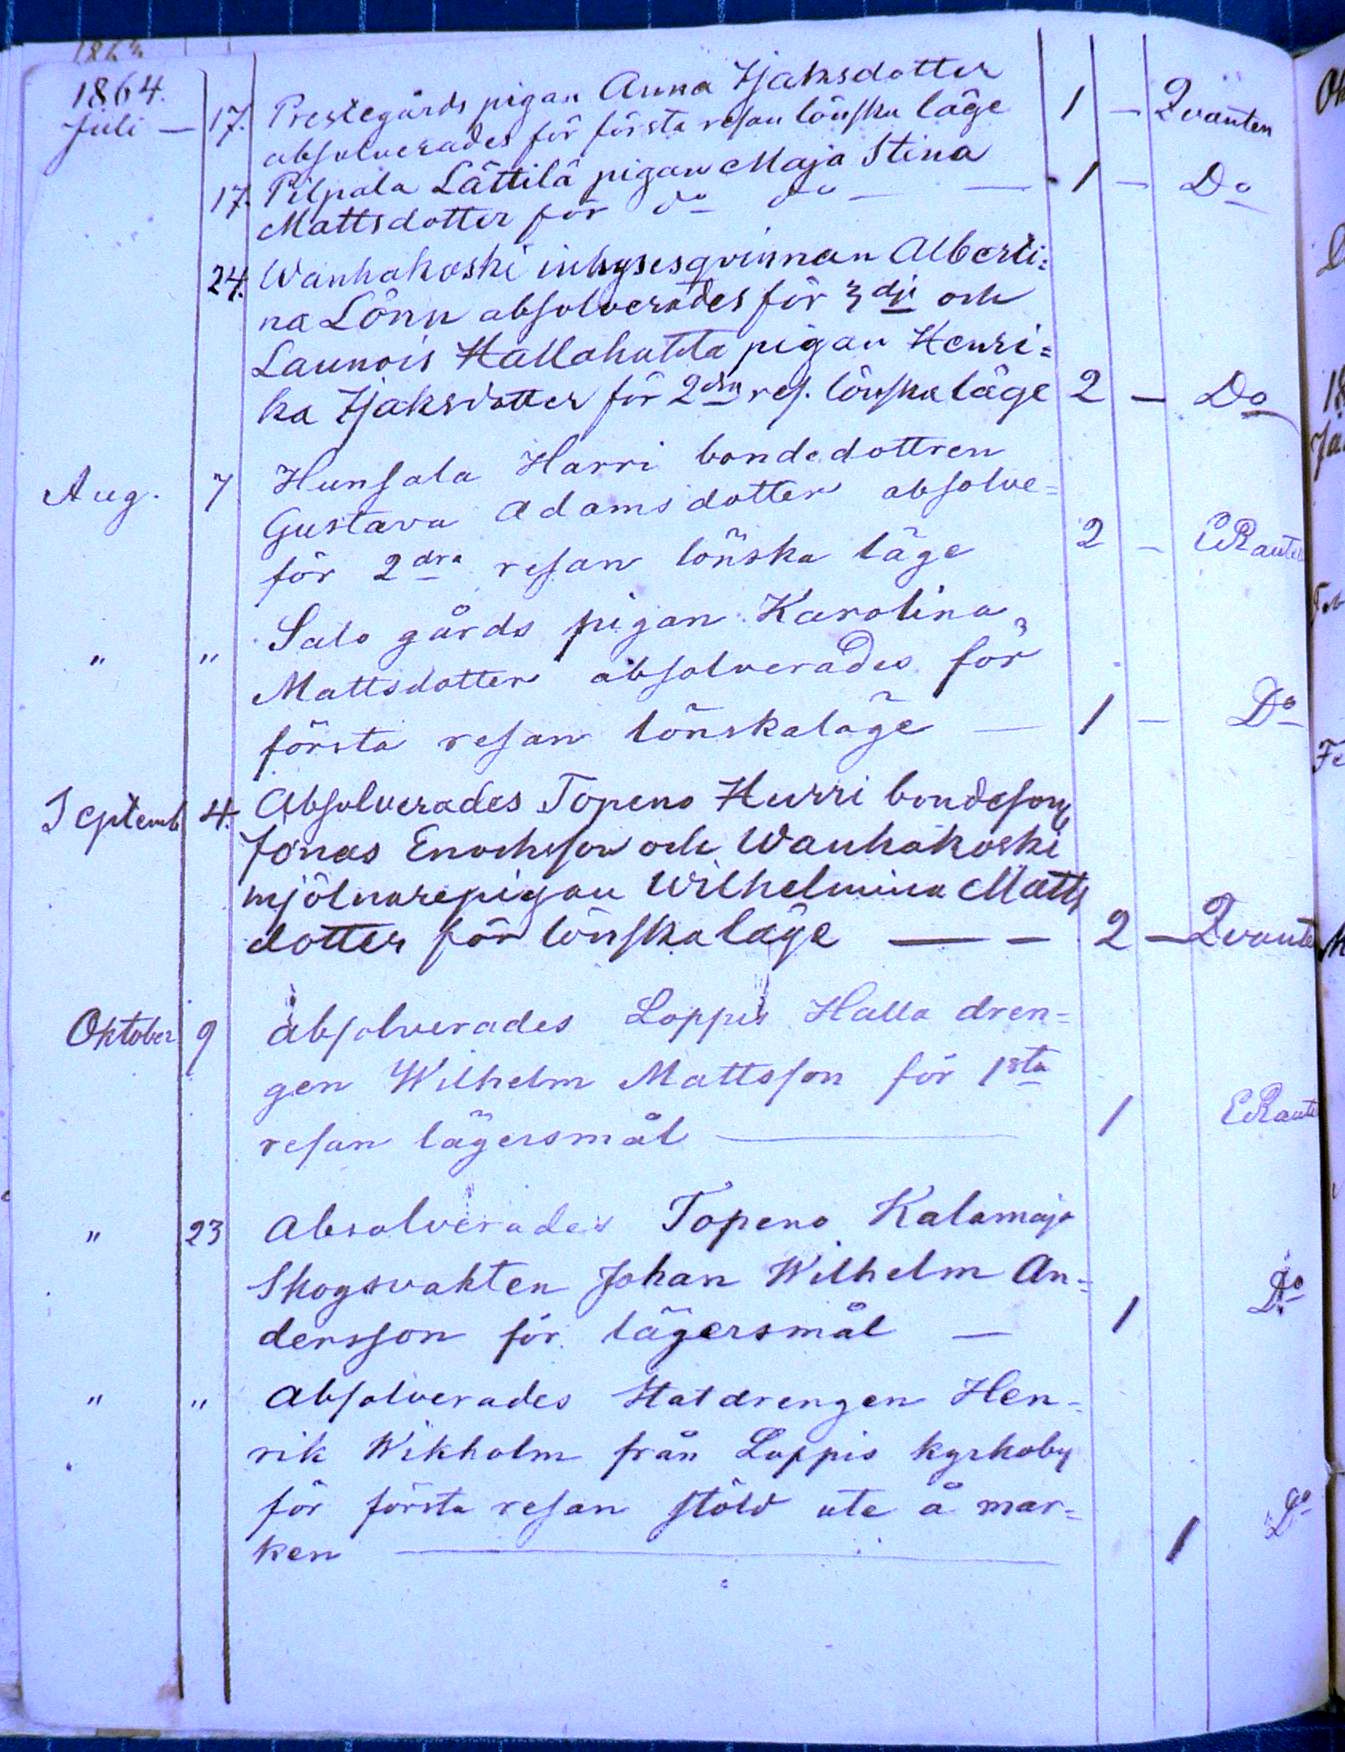 1864.
Juli — 17. Prestegårds pigan Anna Isaksdotter
absolverades för första resan lönska läge 1 — Qvanten
17. Pilpala Lättilä pigan Maja Stina
Mattsdotter för do do — — 1 — Do
24. Wanhakoski inhysesqvinnan Alberti=
na Lönn absolverades för 3dje och
Launois Hallahutta pigan Henri=
ka Isaksdotter för 2dra res. lönska läge 2 — Do
Aug. 7 Hunsala Harri bondedottren
Gustava Adamsdotter absolve=
för 2dra resan lönska läge 2 — ERauten
" " Salo gårds pigan Karolina
Mattsdotter absolverades för
första resan lönskaläge — 1 — Do
Septemb 4. Absolverades Topeno Hurri bondeson
Jonas Enochsson och Wanhakoski
mjölnarepigan Wilhelmina Matts
dotter för lönskaläge — — 2 — Qvante
Oktober 9 absolverades Loppis Halla dren=
gen Wilhelm Mattsson för 1sta
resan lägersmål — 1 ERaute
" 23 Absolverades Topeno Kalamaja
Skogsvakten Johan Wilhelm An=
dersson för lägersmål — 1 Do
" " Absolverades Statdrengen Hen=
rik Wikholm från Loppis kyrkoby
för första resan stöld ute å mar=
ken — 1 Do